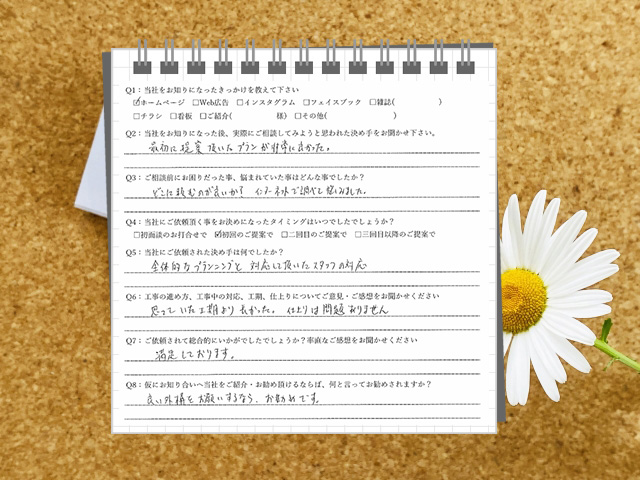 Q1：当社をお知りになったきっかけを教えて下さい
☑ホームページ　□Web広告　□インスタグラム　□フェイスブック　□雑誌(　　　　　)
□チラシ　□看板　□ご紹介(　　　　　様)　□その他(　　　　　　　　)
Q2：当社をお知りになった後、実際にご相談してみようと思われた決め手をお聞かせ下さい。
最初に提案頂いたプランが非常に良かった。
Q3：ご相談前にお困りだった事、悩まれていた事はどんな事でしたか？
どこに頼むのが良いか？ インターネットで調べて悩みました。
Q4：当社にご依頼頂く事をお決めになったタイミングはいつでしたでしょうか？
□初面談のお打合せで　☑初回のご提案で　□二回目のご提案で　□三回目以降のご提案で
Q5：当社にご依頼された決め手は何でしたか？
全体的なプランニングと 対応して頂いたスタッフの対応
Q6：工事の進め方、工事中の対応、工期、仕上りについてご意見・ご感想をお聞かせください
思っていた工期より長かった。 仕上りは問題ありません
Q7：ご依頼されて総合的にいかがでしたでしょうか？率直なご感想をお聞かせください
満足しております。
Q8：仮にお知り合いへ当社をご紹介・お勧め頂けるならば、何と言ってお勧めされますか？
良い外構をお願いするなら、お勧めです。